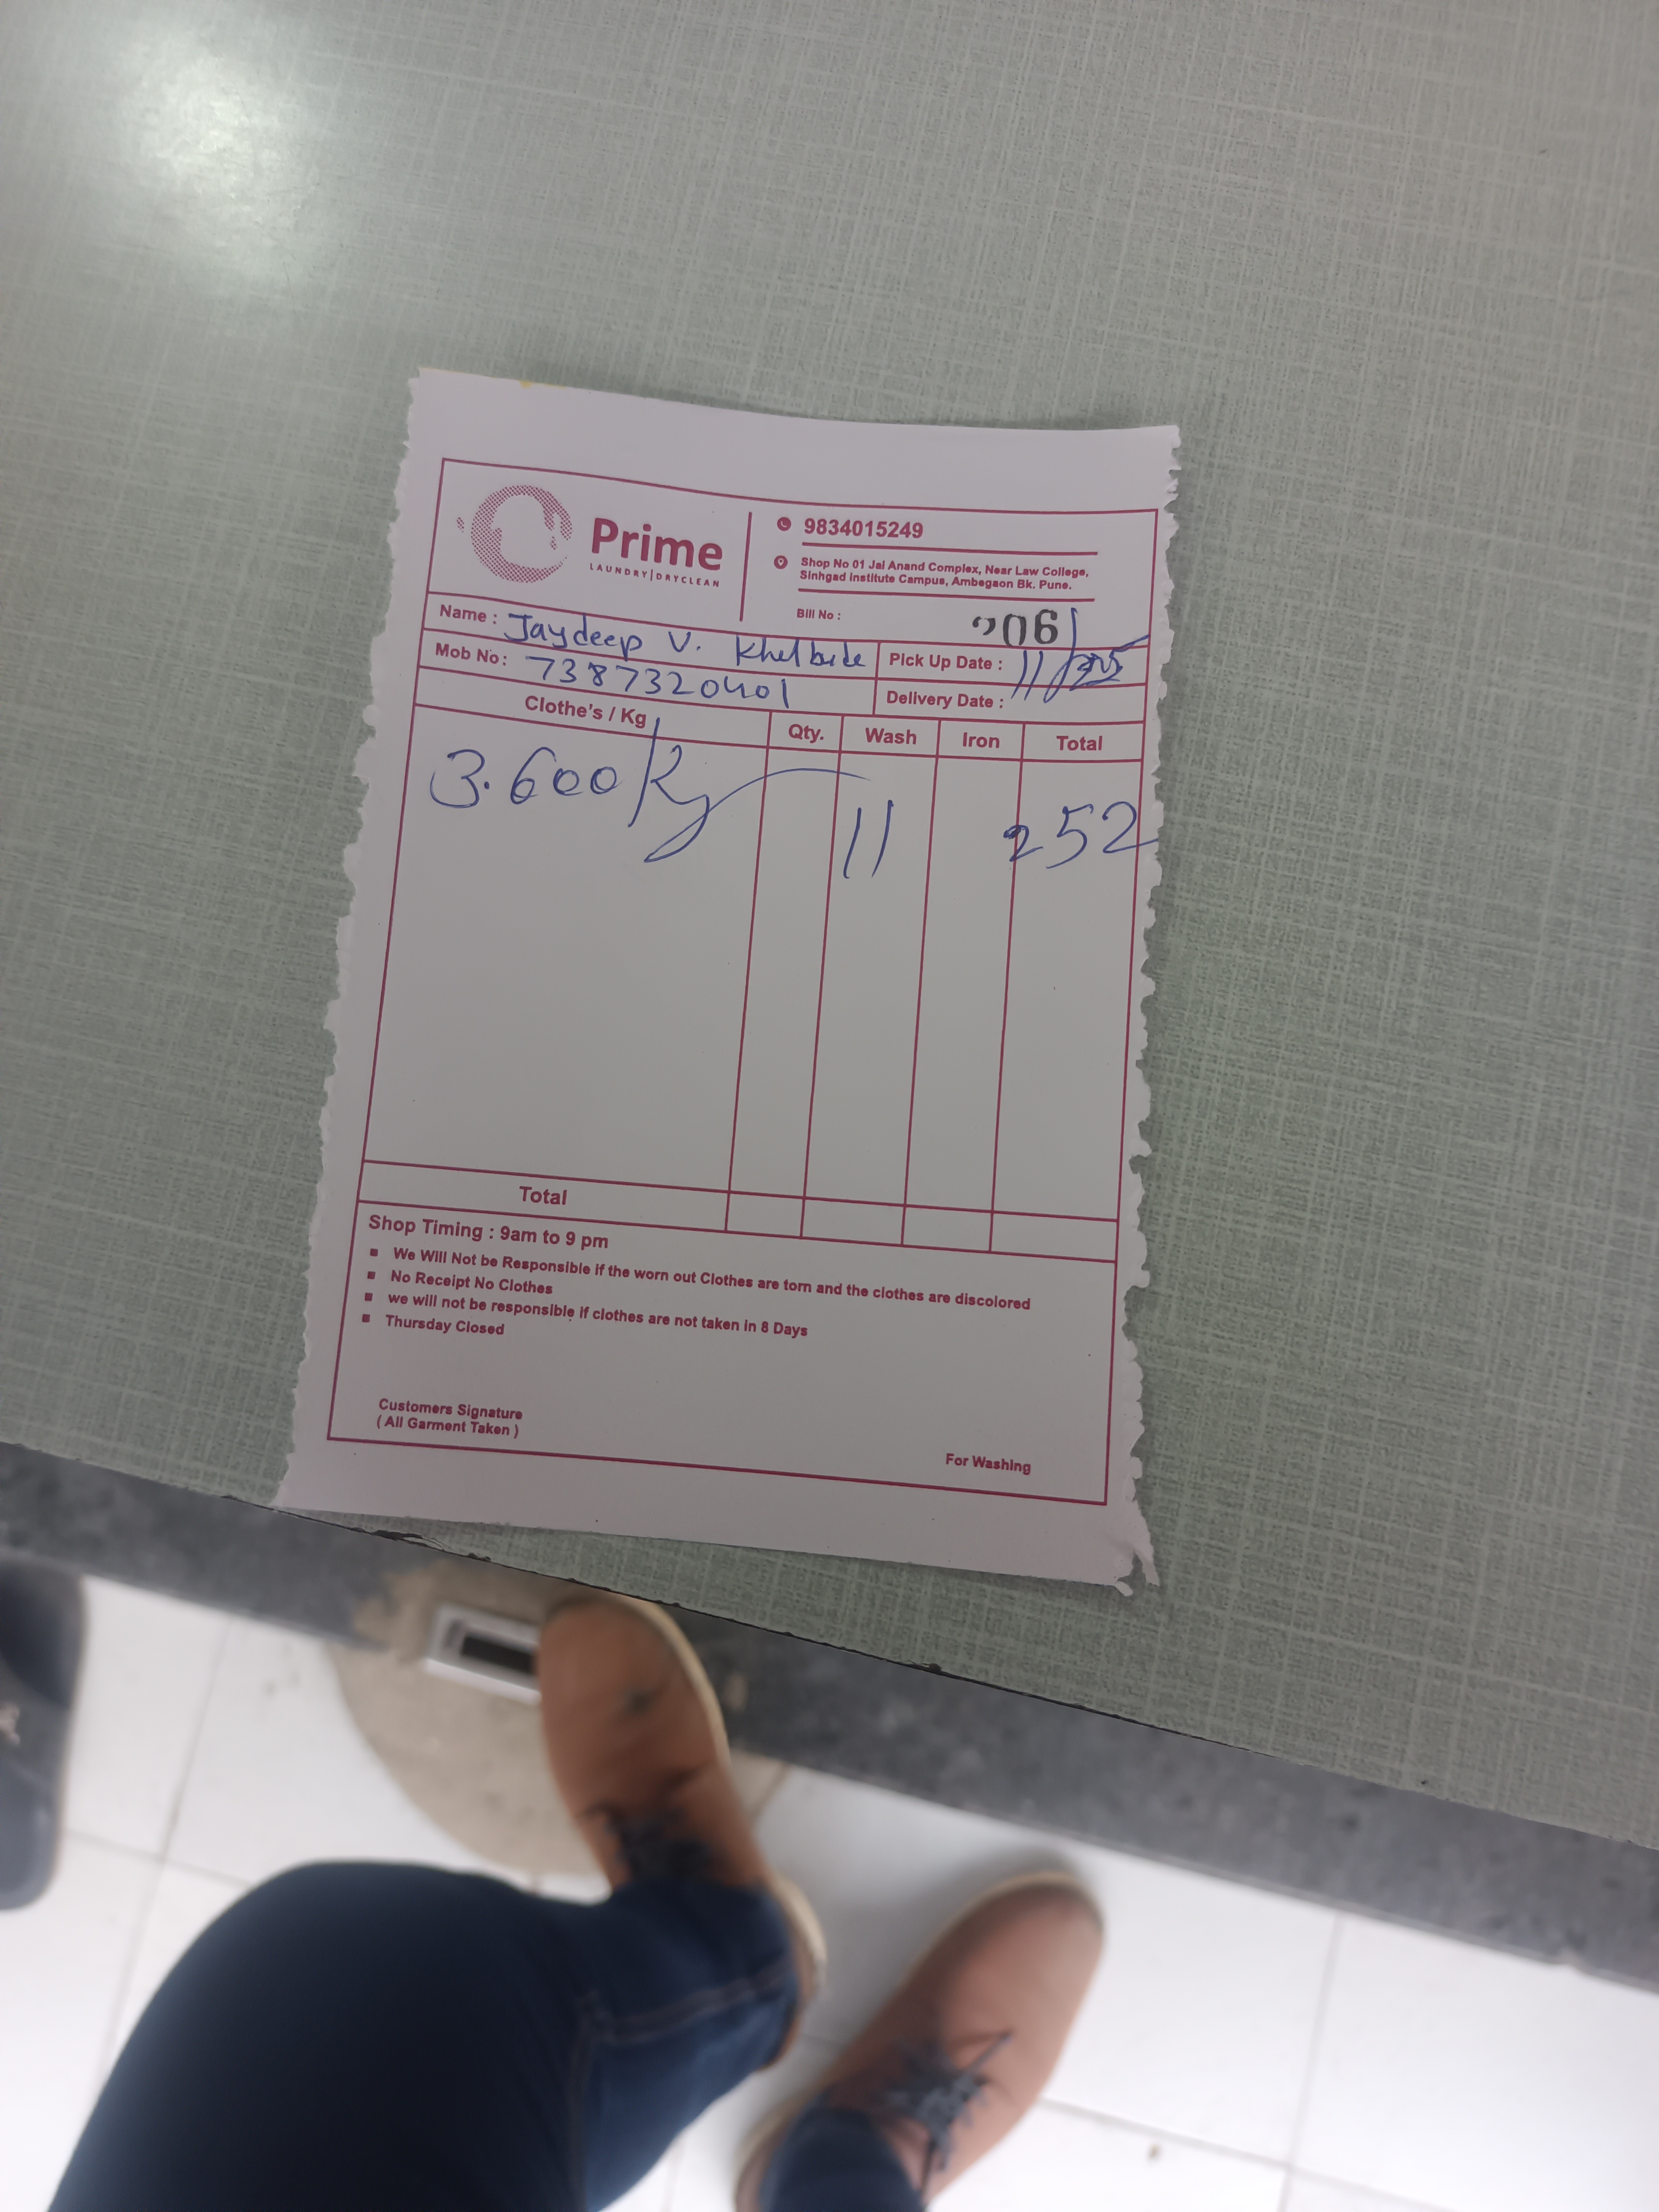 Prime
LAUNDRY|DRYCLEAN
9834015249
Shop No 01 Jai Anand Complex, Near Law College,
Sinhgad Institute Campus, Ambegaon Bk. Pune.
Bill No :
Name : Jaydeep V.
Pick Up Date : 11/
Mob No: 7387320401
Delivery Date :
Clothe's / Kg Qty. Wash Iron Total
3.600 Kg 11 252
Total
Shop Timing : 9am to 9 pm
We Will Not be Responsible if the worn out Clothes are torn and the clothes are discolored
No Receipt No Clothes
we will not be responsible if clothes are not taken in 8 Days
Thursday Closed
Customers Signature
( All Garment Taken )
For Washing